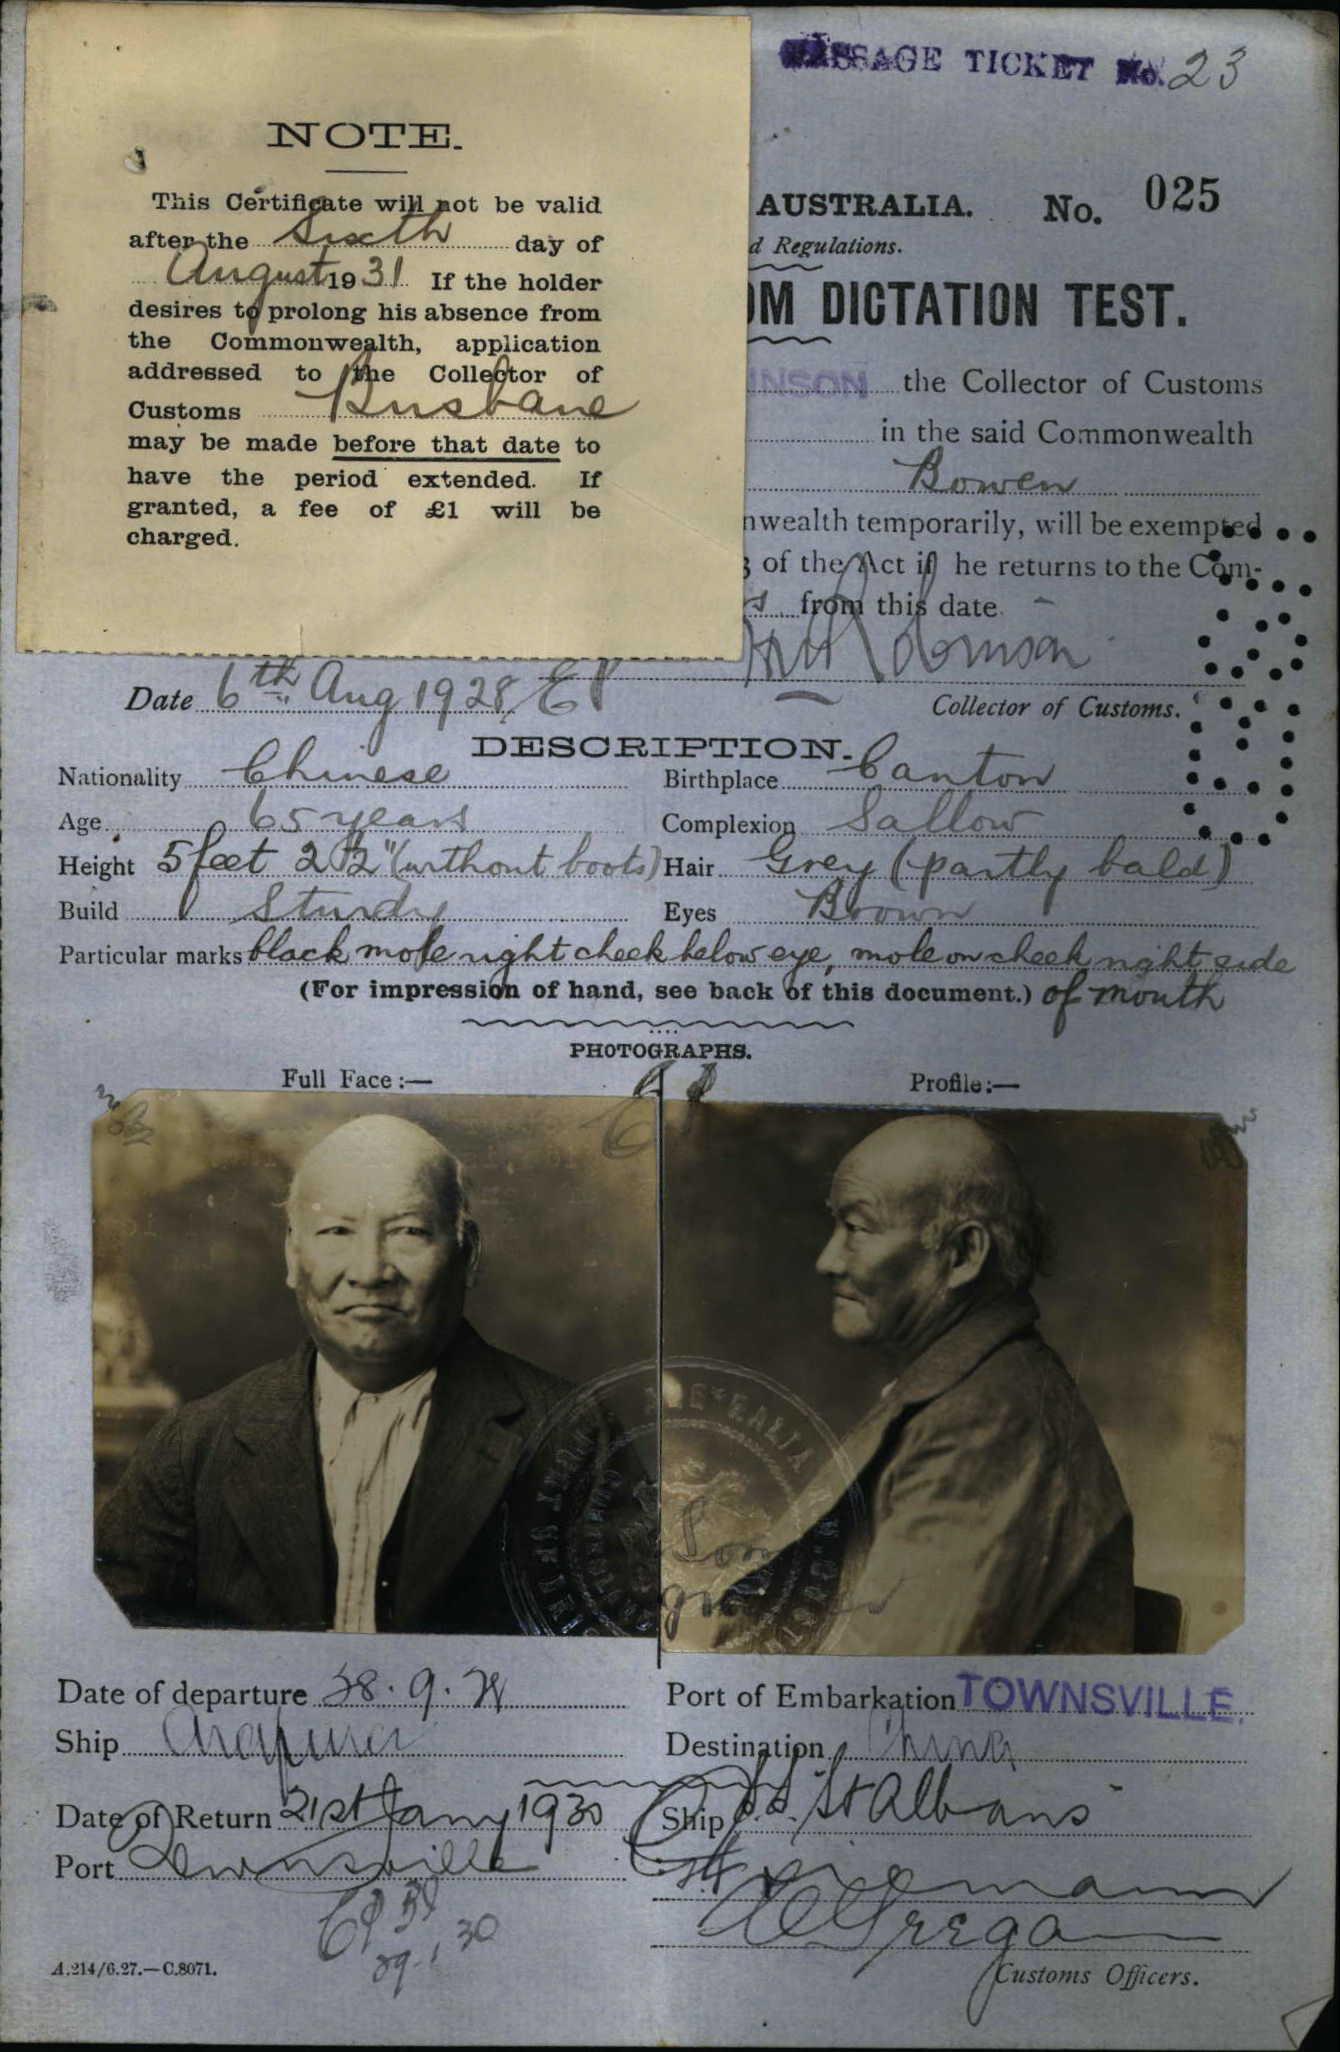 PASSAGE TICKET No. 23
NOTE.
This Certificate will not be valid
after the Sixth day of
August 1931. If the holder
desires to prolong his absence from
the Commonwealth, application
addressed to the Collector of
Customs Brisbane
may be made before that date to
have the period extended. If
granted, a fee of £1 will be
charged.
AUSTRALIA. No. 025
d Regulations.
OM DICTATION TEST.
INSON the Collector of Customs
in the said Commonwealth
Bowen
nwealth temporarily, will be exempted
3 of the Act if he returns to the Com-
s from this date
Robinson
Date 6th Aug 1928 Collector of Customs.
DESCRIPTION.
Nationality Chinese Birthplace Canton
Age 65 years Complexion Sallow
Height 5 feet 2 1/2" (without boots) Hair Grey (partly bald)
Build Sturdy Eyes Brown
Particular marks black mole right cheek below eye, mole on cheek right side
(For impression of hand, see back of this document.) of mouth
PHOTOGRAPHS.
Full Face:— Profile:—
Date of departure 9. Port of Embarkation TOWNSVILLE.
Ship Arafura Destination China
Date of Return 21st Jany 1930 Ship S.S. St Albans
Port Townsville
29.1.30
A.214/6.27.—C.8071. Customs Officers.